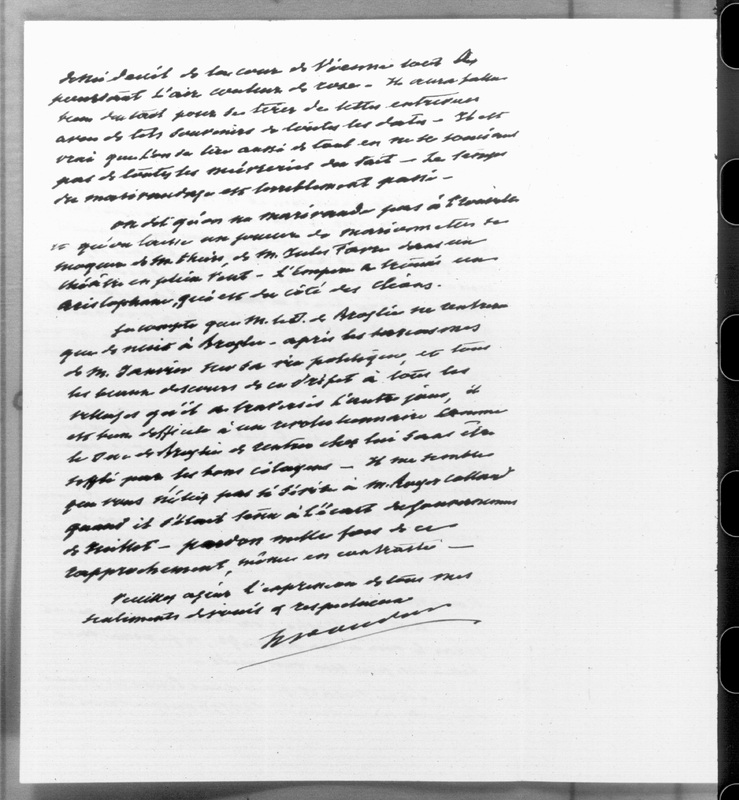 demi deuil de la cour de Vienne tout
pourtant l'air couleur de rose - Il aura fallu
pour se tirer de cette entrevue
avec de tels souvenirs de toutes les dates - Il est
vrai que l'on se tire aussi de tout en ne se souciant
pas de toutes les du tout - Le temps
du marivaudage est terriblement passé -
on dit qu'on ne marivaude pas à
et qu'on laisse un joueur de marionnettes se
moquer de M. Thiers, de M. Jules Favre dans un
théâtre en plein vent - L'Empire a trouvé un
Aristophane, qui est du côté des
Je compte que M. le D. de Broglie ne rentrera
que de nuit à Broglie - après les
de M. Janvier sur sa vie politique, et tous
les beaux discours de ce préfet à tous les
villages qu'il a traversés l'autre jour, il
est bien difficile à un révolutionnaire comme
le Duc de Broglie de rentrer chez lui sans être
sifflé par les bons citoyens - Il me semble
que vous n'étiez pas si sévère à M. Royer Collard
quand il s'était tenu à l'écart du gouvernement
de Juillet - pardon mille fois de ce
rapprochement, même en contraste -
Veuillez agréer l'expression de tous mes
sentiments dévoués et respectueux